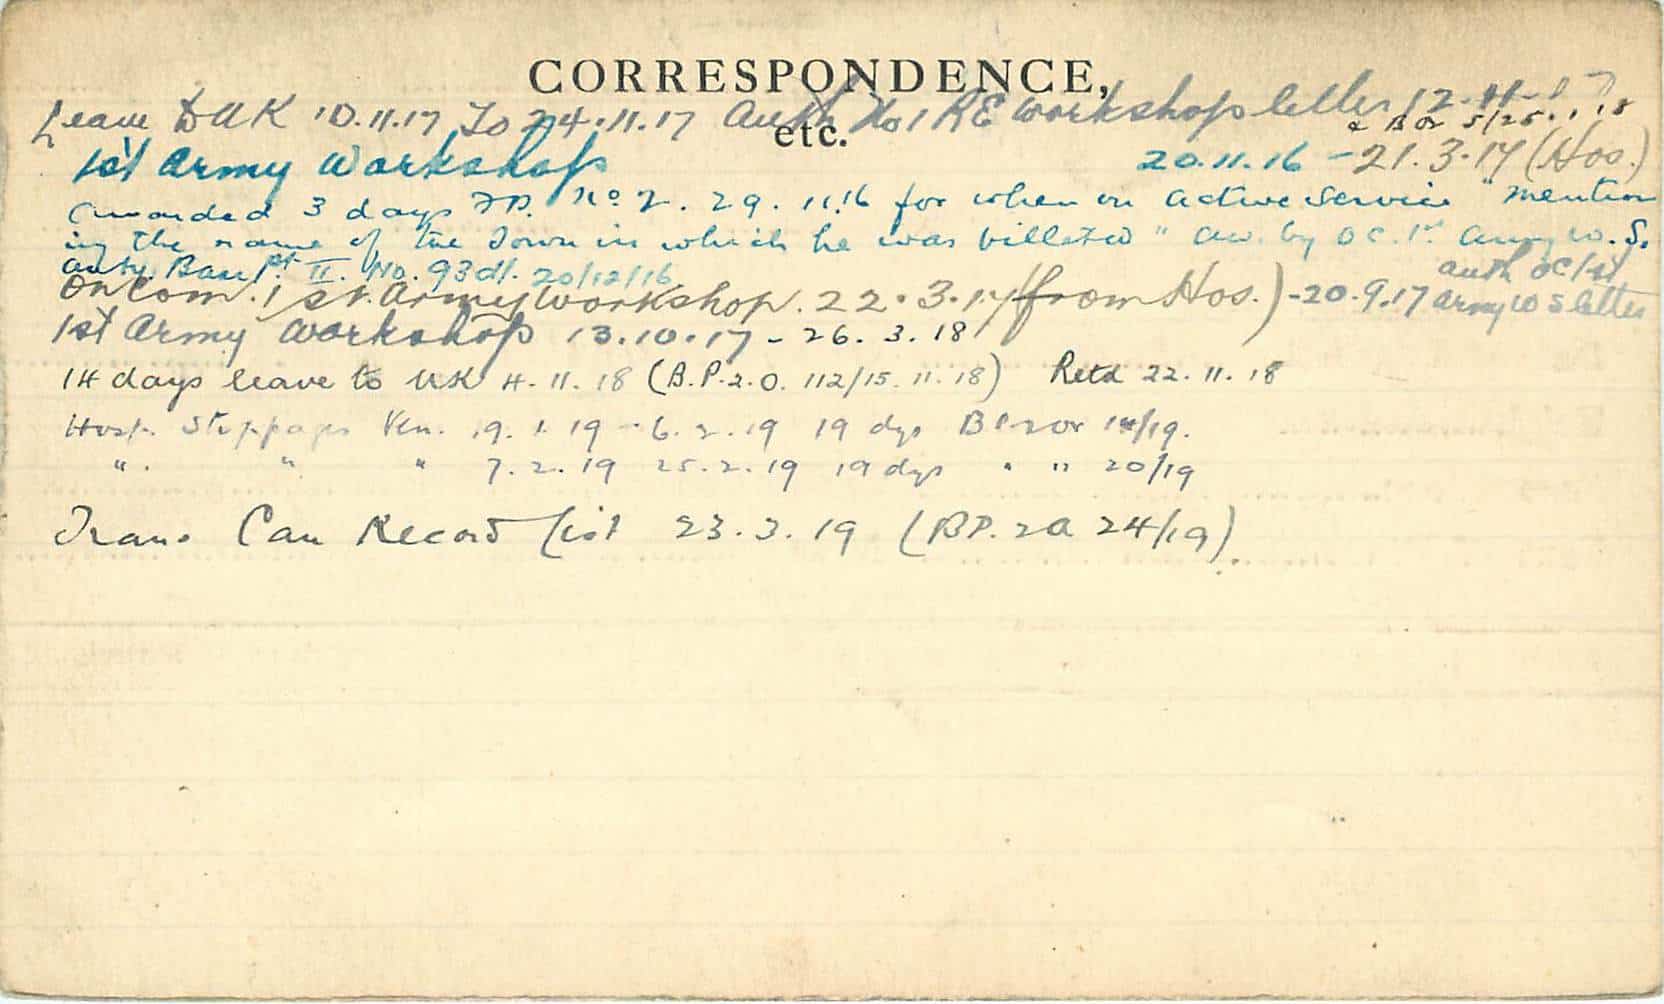 CORRESPONDENCE,
etc.
Leave to UK 10.11.17 To 24.11.17 Auth No 1 RE Workshop letter 12.11.17
5/25.1.18
1st Army Workshop 20.11.16 - 21.3.17 (Hos.)
Awarded 3 days F.P. No 2. 29.11.16 for when on active service "mention
ing the name of the Town in which he was billeted" aw. by OC. 1st Army W.S.
auty Base Pt II. No. 93 dt. 20/12/16
On Com. 1st. Army Workshop. 22.3.17 (from Hos.) - 20.9.17 auth OC 1st Army WS letter
1st Army Workshop 13.10.17 - 26.3.18
14 days leave to UK 4.11.18 (B.P.2.O. 112/15.11.18) Retd 22.11.18
Hosp. Stoppages Ven. 19.1.19 - 6.2.19 19 dys /19.
" " " 7.2.19 25.2.19 19 dys " " 20/19
Trans Can Record List 23.3.19 (BP. 2a 24/19)